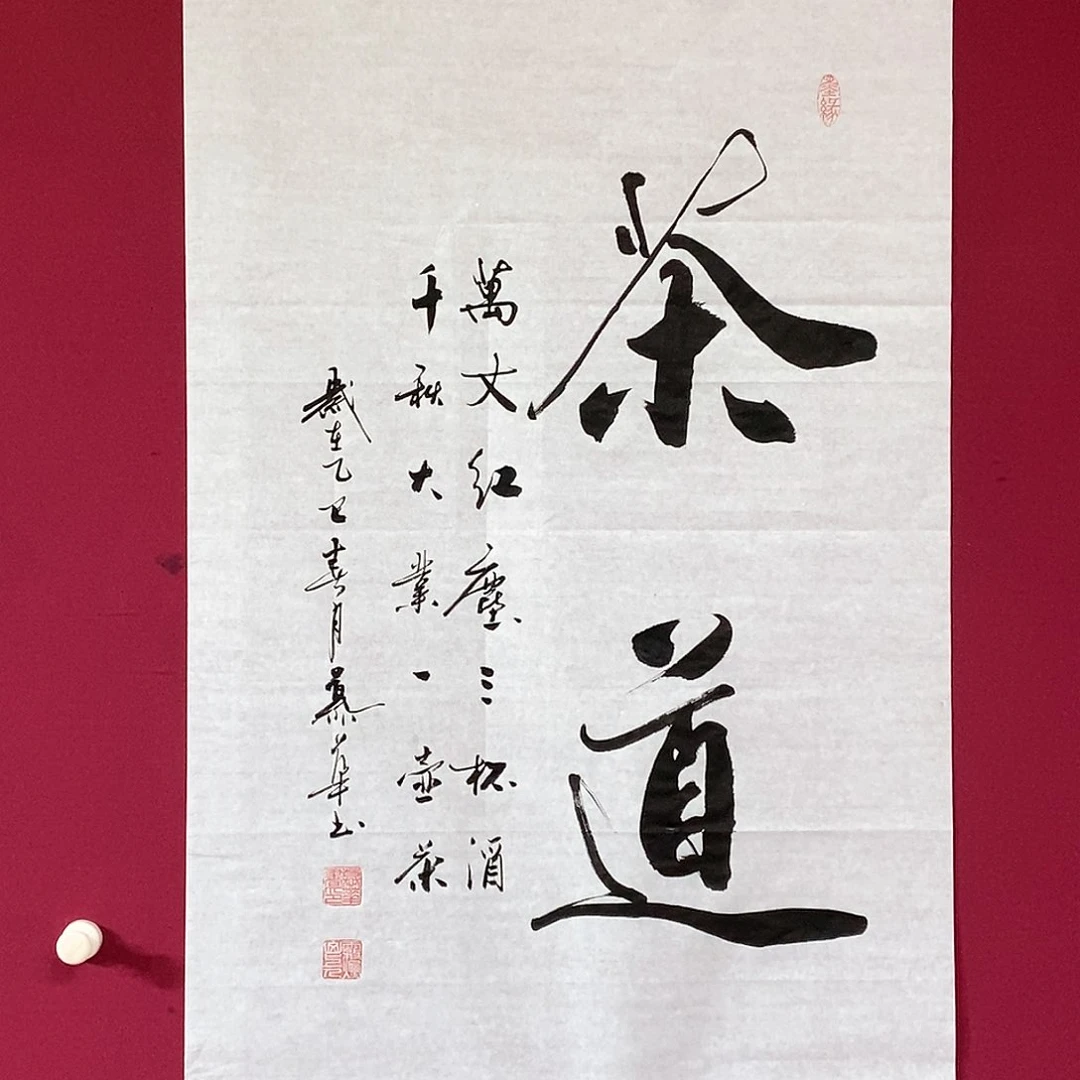 墨缘
茶道
萬丈紅塵三杯酒
千秋大業一壺茶
歲在乙巳春月慕華书